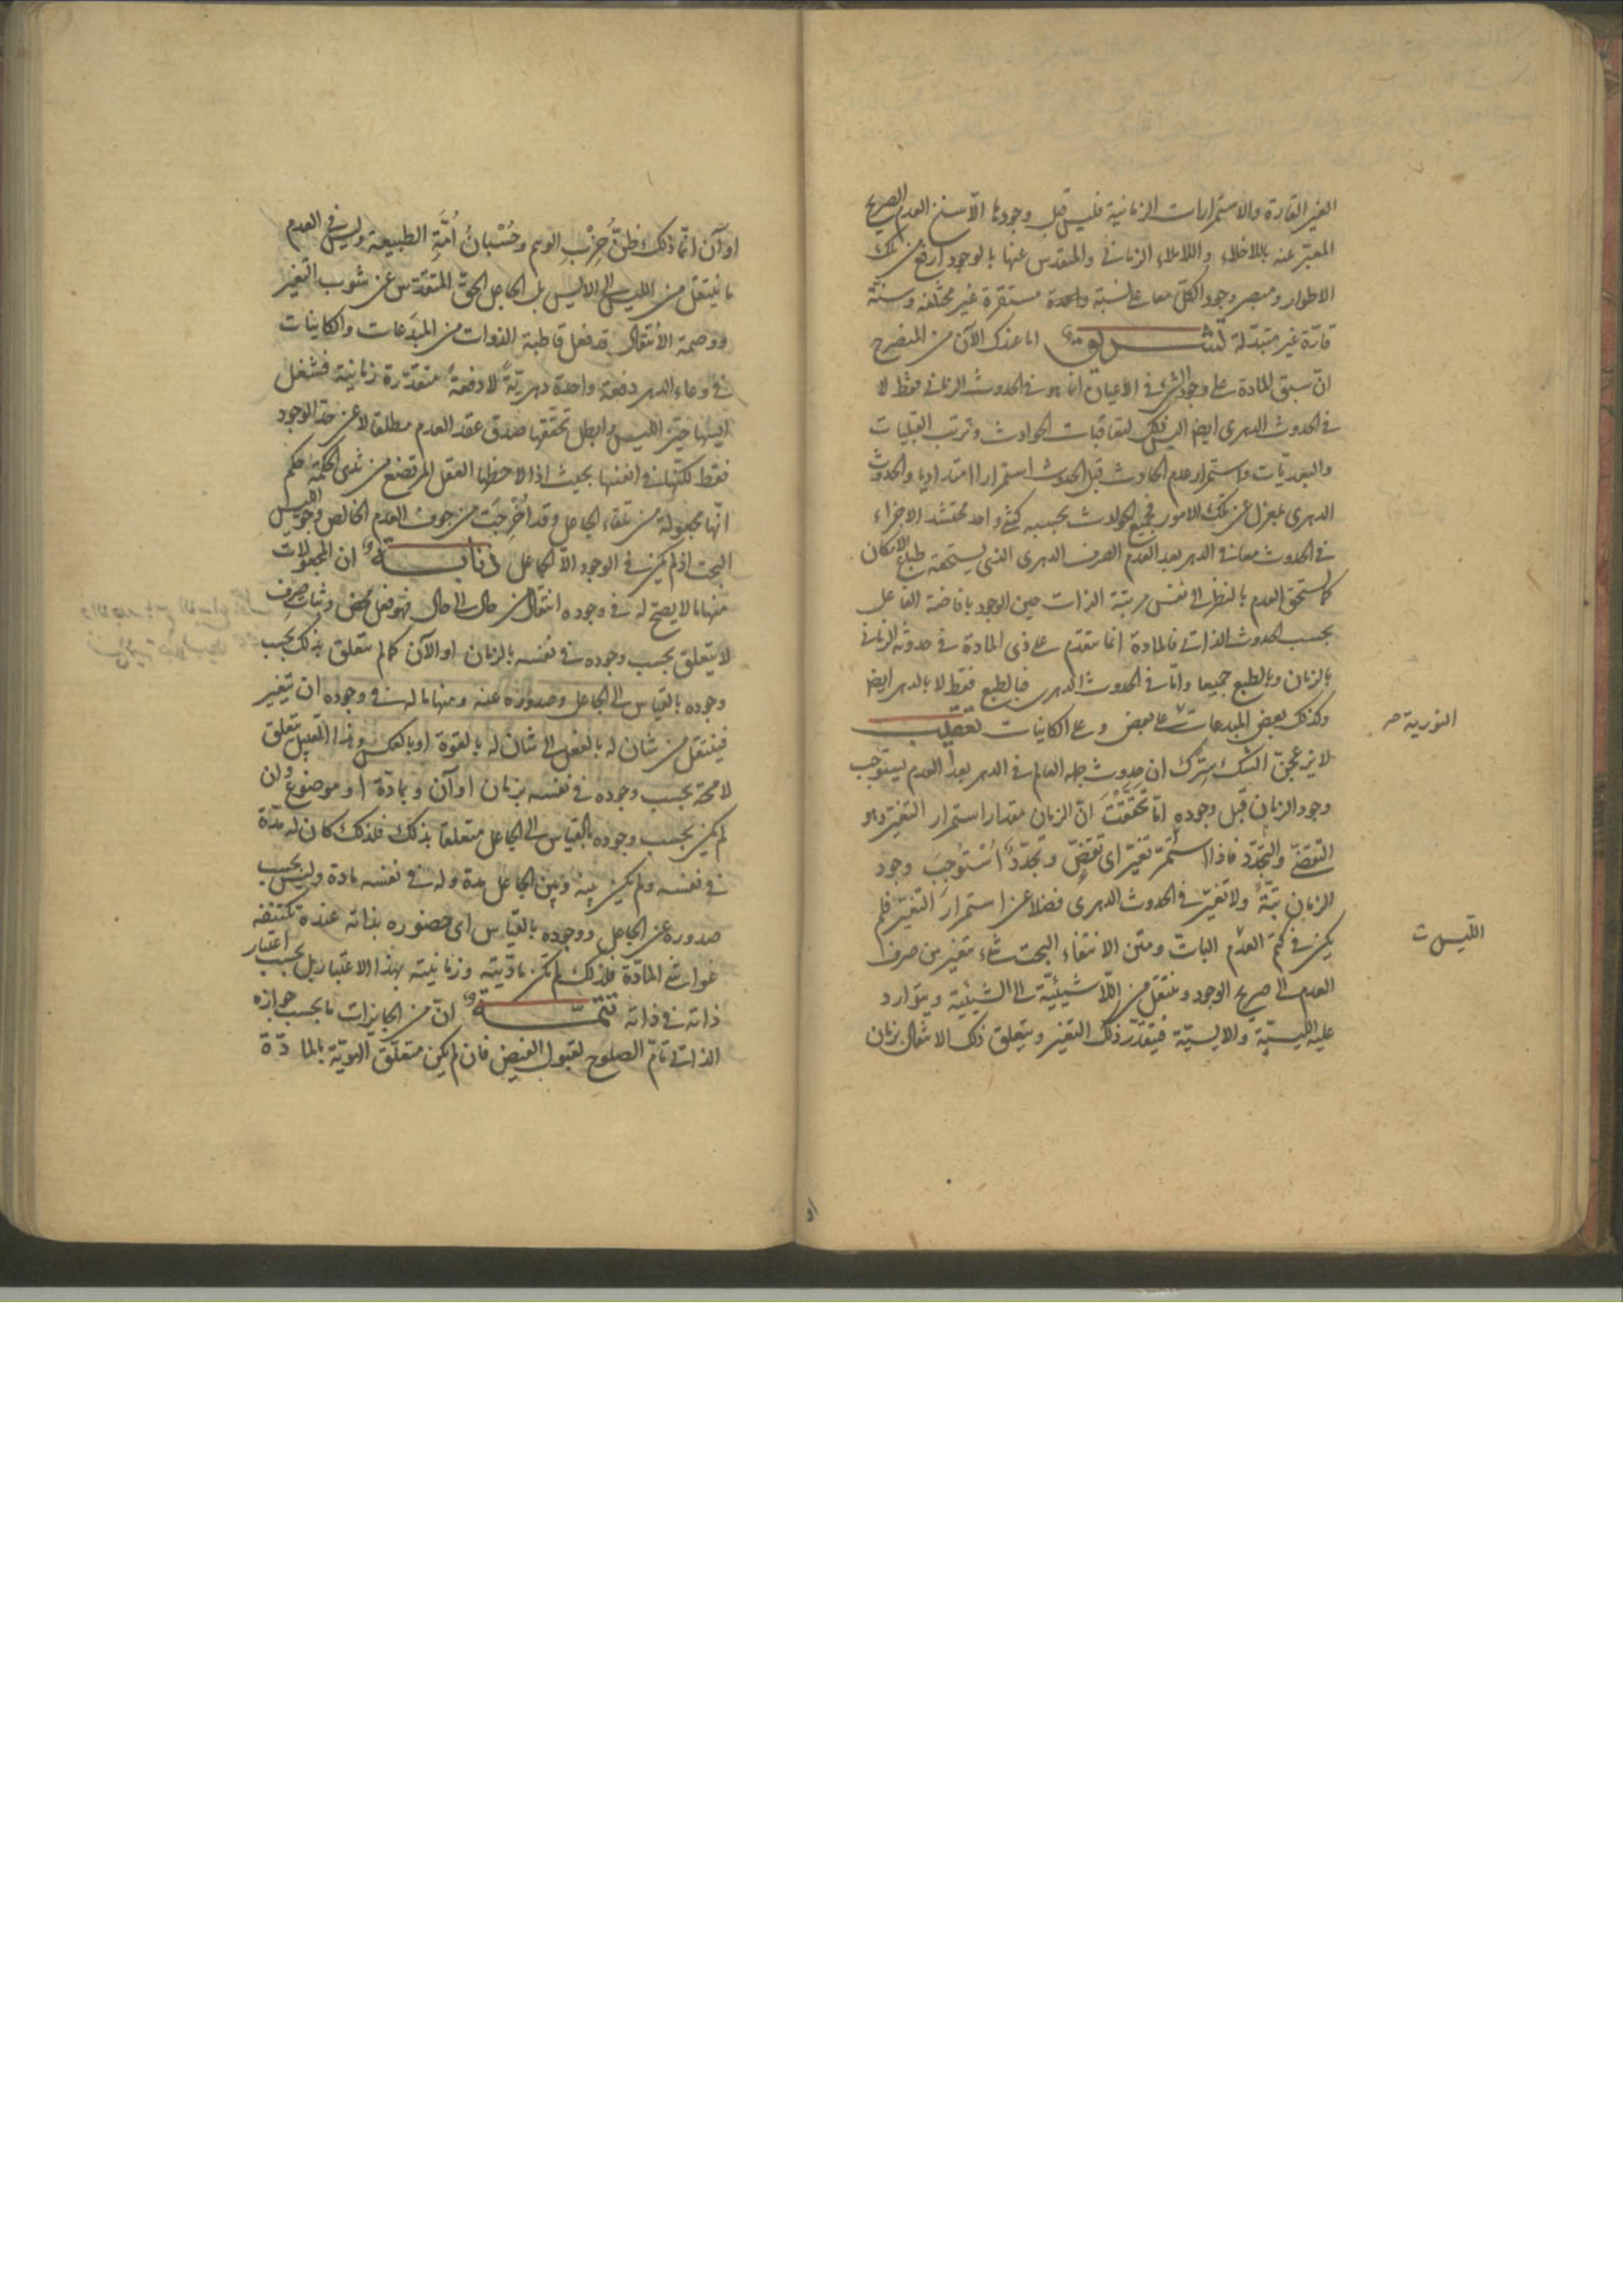 الغير القارة والاستمرارات الزمانية فليس قبل وجودها الا سنخ العدم الصريح
المعبّر عنه باللاخلاء واللاملاء الزماني والمتقدس عنها بالوجود ارفع من تلك
الاطوار ومبصر وجود الكل معا على نسبة واحدة مستقرة غير مختلفة وسنّة
قارّة غير متبدّلة تشريق اما عندك الآن من المتضح
انّ سبق المادة على وجود الشيء في الاعيان انما هو في الحدوث الزماني فقط لا
في الحدوث الدهري ايضا اليس ذلك لتعاقبات الحوادث وترتب القبليات
والبعديّات واستمرار عدم الحادث قبل الحدوث استمرارا امتداديا والحدوث
الدهري بمعزل عن تلك الامور فجميع الحوادث بحسبه كشيء واحد محتشد الاجزاء
في الحدوث معا في الدهر بعد العدم الصرف الدهري الذي يستحقه طباع الامكان
كما يستحق العدم بالنظر الى نفس مرتبة الذات حين الوجود بافاضة الفاعل
بحسب الحدوث الذاتي فالمادة انما تتقدم على ذي المادة في حدوثه الزماني
بالزمان وبالطبع جميعا وامّا في الحدوث الدهري فبالطبع فقط لا بالدهر ايضا
وكذلك بعض المبدعات على بعض وعلى الكاينات تعقيب
لا يزعجنّ الشك سرّك ان حدوث جملة العالم في الدهر بعد العدم يستوجب
وجود الزمان قبل وجوده امّا تحقّقتَ انّ الزمان مقدار استمرار التغيّر وهو
التقضّي والتجدّد فاذا استمرّ تغيّر اي تقضٍّ وتجدّدٌ اُسْتُوجِبَ وجود
الزمان بتّةً ولا تغيّر في الحدوث الدهري فضلا عن استمرار التغيّر فلم
يكن في كتم العدم البات ومتن الانتفاء البحت شيء يتغير من صرف
العدم الى صريح الوجود وينتقل من اللاشيئيّة الى الشيئية ويتوارد
عليه الليسيّة والايسيّة فيتقدّر ذلك التغير ويتعلق ذلك الانتقال بزمان
النورية
الليس
او آن انّما ذلك ظنّ حِزْبِ الوهم وحُسْبانُ اُمَّةِ الطبيعة وليس في العدم
ما ينتقل من الليس الى الايس بل الجاعل الحق المتقدّس عن شوب التغير
ووصمة الانتقال قد فعل قاطبة الذوات من المبدَعات والكاينات
في وعاء الدهر دفعة واحدة دهريّةً لا دفعةً متقدّرة زمانية فشغل
ايسها حيّز الليس وابطل تحقّقها صدق عقد العدم مطلقا لا عن حدّ الوجود
فقط لكنّها في انفسها بحيث اذا لاحظها العقل المرتضع من ثدي الحكمة حكم
انّها مجعولة من تلقاء الجاعل وقد اُخرِجَت من جوف العدم الخالص وجوّ الليس
البحت اذ لم يكن في الوجود الّا الجاعل ذنابة ان المجعولات
منها ما لا يصح له في وجوده انتقال من حال الى حال فهو فعل محض وثبات صرف
لا يتعلق بحسب وجوده في نفسه بالزمان او الآن كما لم يتعلق بذلك بحسب
وجوده بالقياس الى الجاعل وصدوره عنه ومنها ما له في وجوده ان يتغير
فينتقل من شان له بالفعل الى شان له بالقوة او بالعكس وهذا القبيل يتعلق
لا محة بحسب وجوده في نفسه بزمان او آن وبمادّة او موضوع وان
لم يكن بحسب وجوده بالقياس الى الجاعل متعلقا بذلك فلذلك كان له مدّة
في نفسه ولم يكن بينه وبين الجاعل مدة وله في نفسه مادة وليس بحسب
صدوره عن الجاعل ووجوده بالقياس اي حضوره بذاته عنده تكتنفه
غواشي المادّة فلذلك لم تكن مادّيته وزمانيته بهذا الاعتبار بل بحسب اعتبار
ذاته في ذاته تتمّة انّ من الجايزات ما بحسب جوازه
الذاتي تامّ الصلوح لقبول الفيض فان لم يكن متعلّق الهويّة بالمادّة